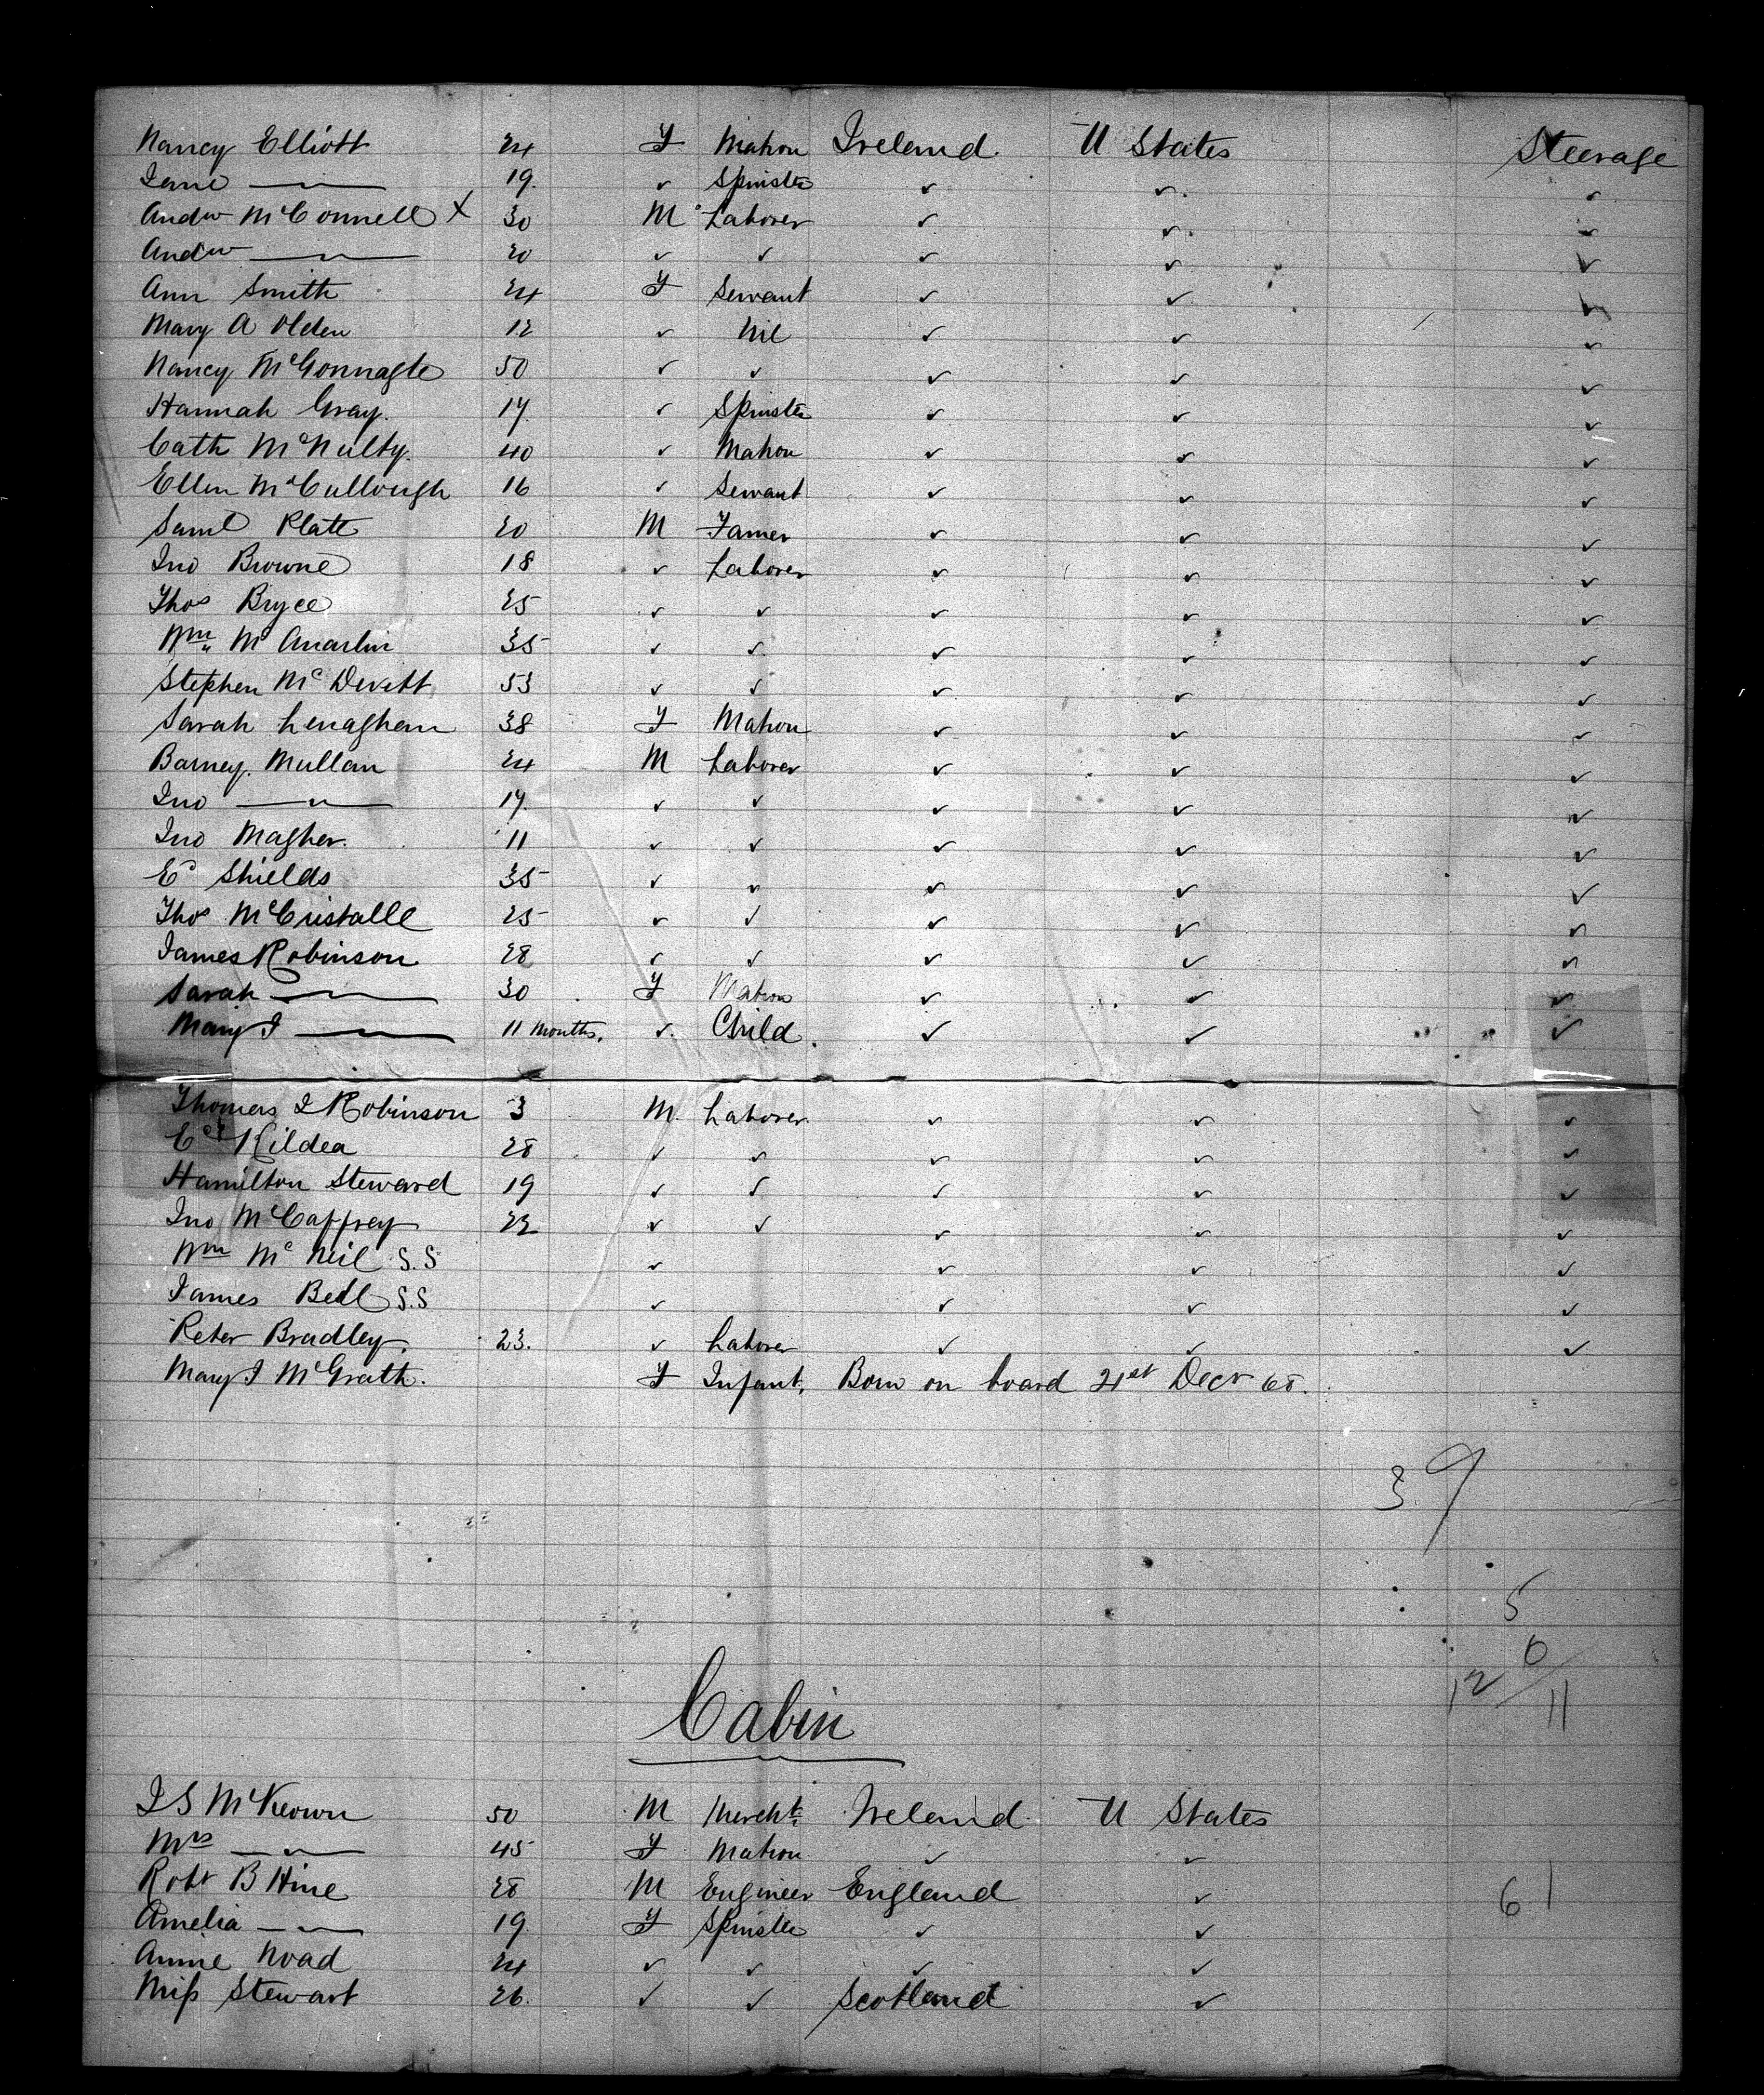 Nancy Elliott 24 F Matron Ireland U States Steerage
Jane —〃— 19 ✓ Spinster ✓ ✓ ✓
Andw McConnell X 30 M Laborer ✓ ✓ ✓
Andw —〃— 20 ✓ ✓ ✓ ✓ ✓
Ann Smith 24 F Servant ✓ ✓ ✓
Mary A Olden 12 ✓ Nil ✓ ✓ ✓
Nancy McGonnagle 50 ✓ ✓ ✓ ✓ ✓
Hannah Gray. 17 ✓ Spinster ✓ ✓ ✓
Cath McNulty. 40 ✓ Matron ✓ ✓ ✓
Ellen McCullough 16 ✓ Servant ✓ ✓ ✓
Saml Platt 20 M Farmer ✓ ✓ ✓
Jno Browne 18 ✓ Laborer ✓ ✓ ✓
Thos Bryce 25 ✓ ✓ ✓ ✓ ✓
Wm Mc 35 ✓ ✓ ✓ ✓ ✓
Stephen McDevitt 53 ✓ ✓ ✓ ✓ ✓
Sarah Lenaghan 38 F Matron ✓ ✓ ✓
Barney Mullan 24 M Laborer ✓ ✓ ✓
Jno —〃— 17. ✓ ✓ ✓ ✓ ✓
Jno Magher. 11 ✓ ✓ ✓ ✓ ✓
Ed Shields 35 ✓ ✓ ✓ ✓ ✓
Thos McCristalle 25 ✓ ✓ ✓ ✓ ✓
James Robinson 28 ✓ ✓ ✓ ✓ ✓
Sarah —〃— 30 F Matron ✓ ✓ ✓
Mary J —〃— 11 Months. ✓ Child. ✓ ✓ ✓
Thomas J Robinson 3 M. Laborer ✓ ✓ ✓
Ed Kildea 28 ✓ ✓ ✓ ✓ ✓
Hamilton Steward 19 ✓ ✓ ✓ ✓ ✓
Jno McCaffrey 22 ✓ ✓ ✓ ✓ ✓
Wm McNeil S.S ✓ ✓ ✓ ✓
James Bell S.S ✓ ✓ ✓ ✓
Peter Bradley. 23. ✓ Laborer ✓ ✓ ✓
Mary J McGrath. F Infant, Born on board 21st Decr 68.
39
5
6
12/11
Cabin
J S McKeown 50 M Mercht. Ireland U States
Mrs —〃— 45 F Matron ✓ ✓
Robt B Hine 28 M Engineer England ✓
Amelia —〃— 19. F Spinster ✓ ✓
Annie Noad 24 ✓ ✓ ✓ ✓
Miss Stewart 26. ✓ ✓ Scotland ✓
61